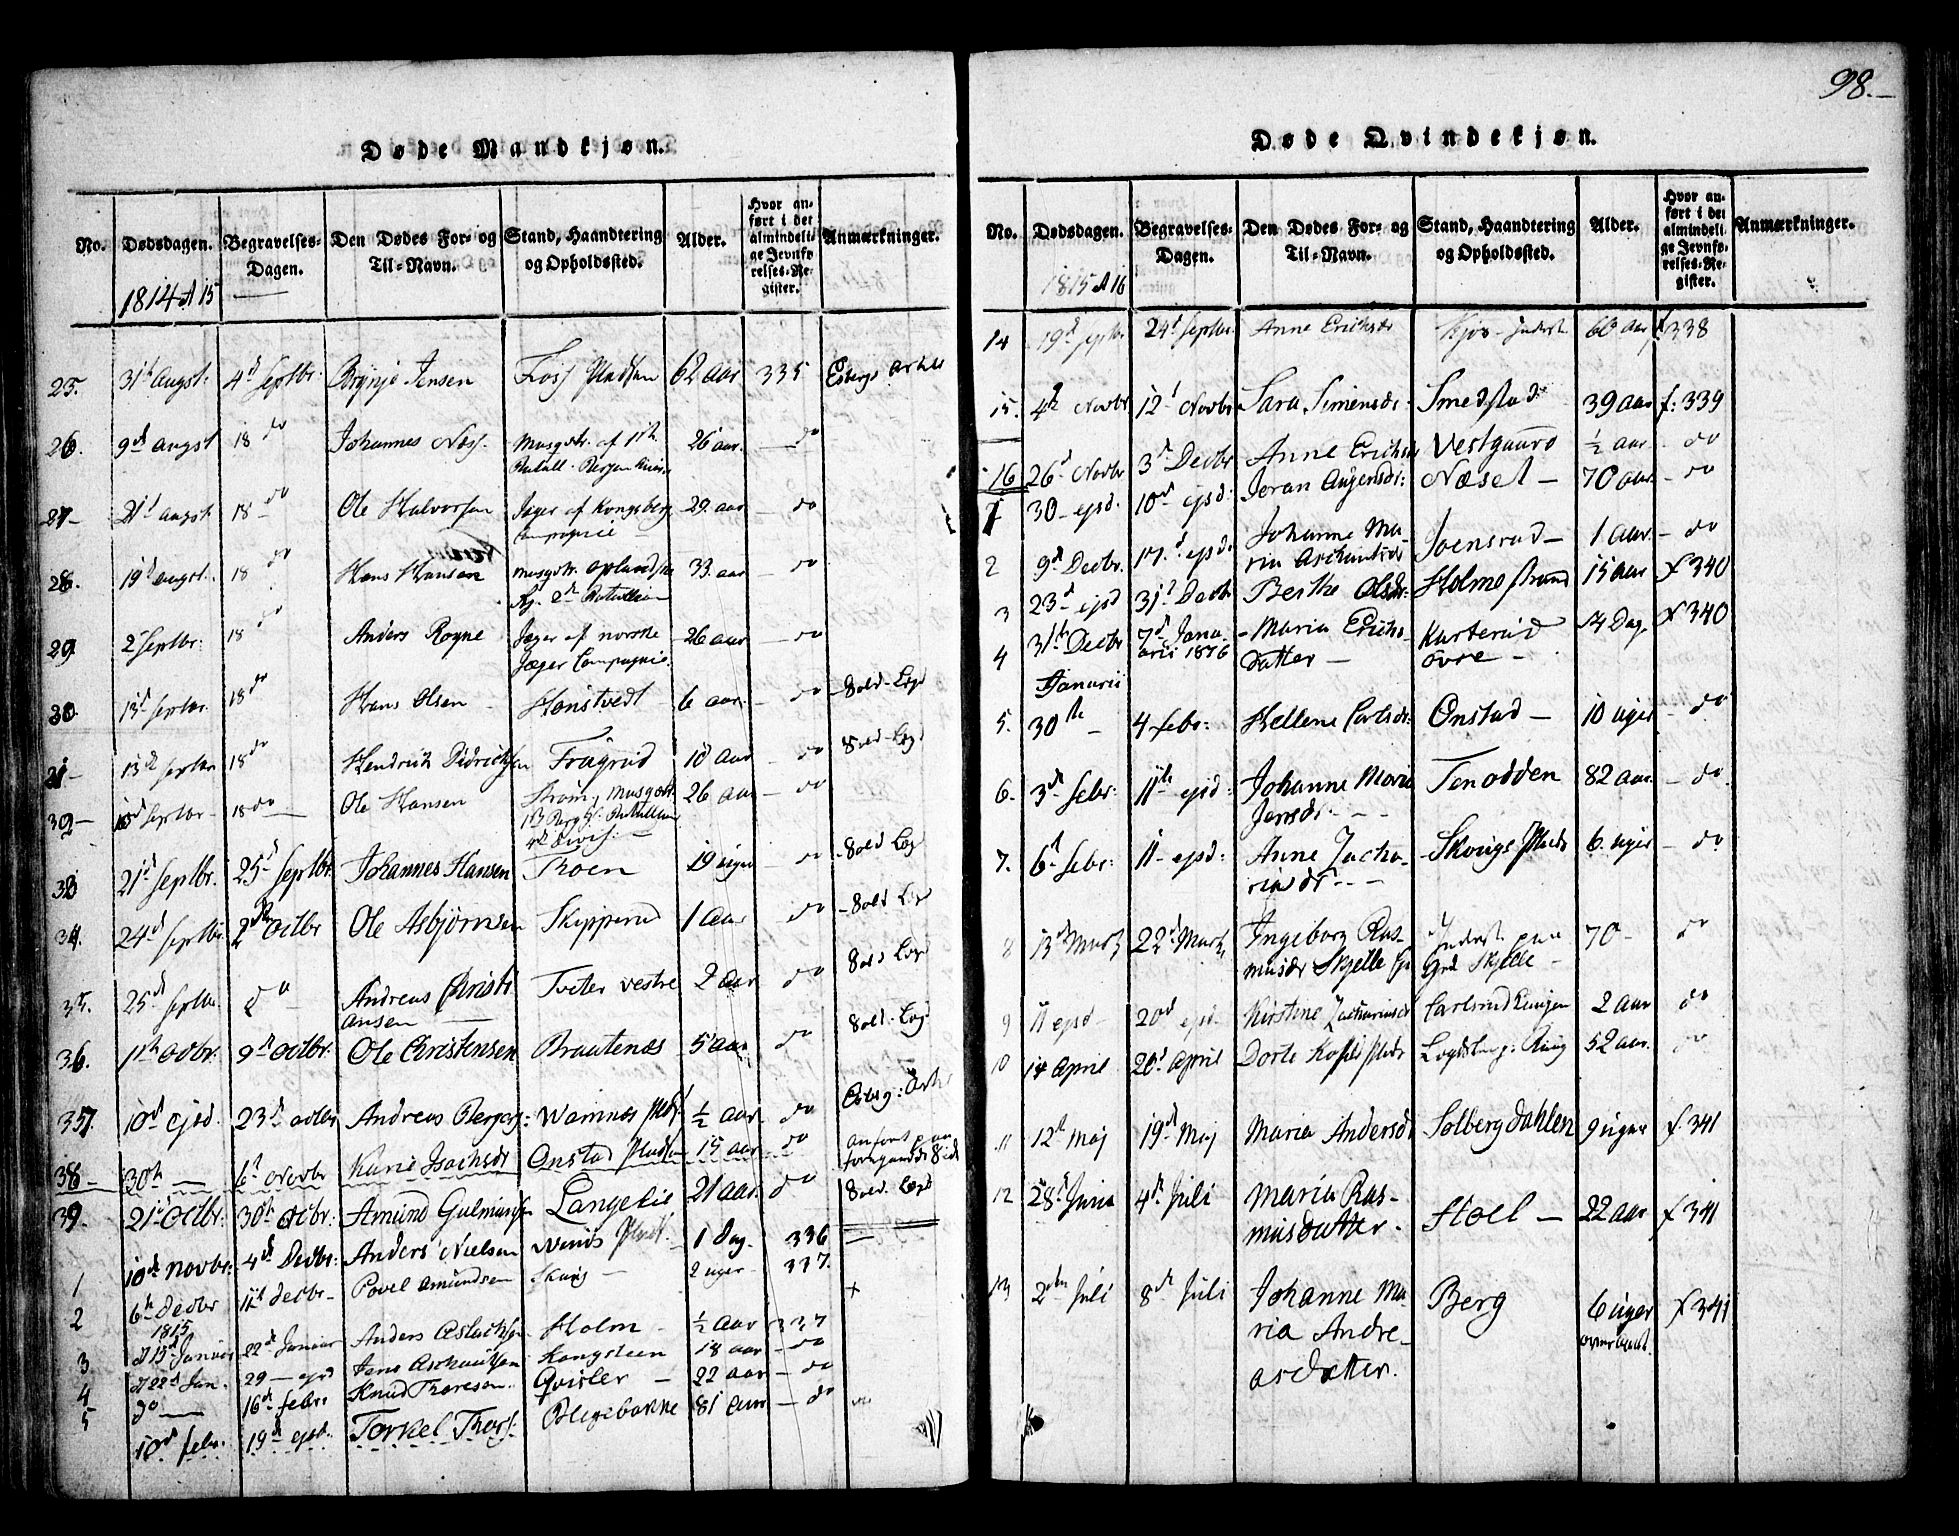 98.
Døde Mandkjøn.
No. Dødsdagen. Begravelses-Dagen. Den Dødes For- og Til-Navn. Stand, Haandtering og Opholdssted. Alder. Hvor anført i det almindelige Jevnførelses-Register. Anmærkninger.
1814 A 15
25. 31th augst. 4d Septbr. Brynje Jensen Foss Pladsen 62 aar 335
26. 9d augst 18 do Johannes Næss. Musqvtr. af 1th Batall. Bergen 26 aar. do
27 21d augst. 18 do Ole Halvorsen Jæger af Kongsberg Compagnie 29 aar do
28. 19d augst. 18 do Hans Hansen Musqvtr. Oplandske Rg. 2d Batallion 33. aar do
29 2 Septbr: 18 do Anders Røyne Jæger af norske Jæger Compagnie. 26 aar do
30 13d Septbr. 18 do Hans Olsen Hønstvedt 6 aar. do
31 13d Septbr 18 do Hendrich Didrichsen Frøgrud 10 aar do
32 Septbr 18 do Ole Hansen Strøm, Musqvtr. 26 aar do
33 21d Septbr. 25d Septbr. Johannes Hansen Thoen 19 uger do
34. 24d Septbr. 2den Octbr Ole Asbjørnsen Skipperud 1 Aar do
35. 25d Septbr do Andreas Christiansen Tveter vestre 2 Aar do
36. 1th Octbr. 9d Octbr. Ole Christensen Brautenæs 5 aar do
37. 10d ejsd. 23d octbr Andreas Bergers: Wamnæs Plds. ½ aar do
38 30th 6t Novbr Karie Isachsdr Onstad Pladsen 15 aar do anført paa foregaaende Side
39. 21d Octbr. 30th Octbr: Amund Gulmunds Langelie 21 aar. do
1 10d Novbr: 4d Decbr: Anders Nielsen 1 Dag. 336
2 6th Decbr 11th decbr Povel Amundsen 2 uger 337.
1815
3 d 15d Januar 22d Januar Anders Aslachsen Holm ½ aar 337
4 d 22d Jan. 29 ejsd Jens Aschautsen Kongsteen 18 aar do
do 16d febr Knud Thoresen. Qvisler 22 aar do
5 10d febr. 19d ejsd. Torkel Thors. Blegebakke 81 aar do
Døde Qvindekjøn.
No. Dødsdagen. Begravelses-Dagen. Den Dødes For- og Til-Navn. Stand, Haandtering og Opholdssted. Alder. Hvor anført i det almindelige Jevnførelses-Register. Anmærkninger.
1815 A 16
14 19d septbr 24d Septbr. Anne Erichsdr 60 aar f 338
15. 4d Novbr 12d Novbr Sara Simensdr. Smedstad 39 aar f. 339
16 26d Novbr 3d Decbr Anne Erichsdr Vestgaard ½ aar do
1 30 ejsd. 10d ejsd: Joran Augensdr: Næset 70 aar do
2 9d Decbr. 17d ejsd. Johanne Maria Aschautsdr Joensrud 1 Aar. do
3 23d ejsd 31d Decbr Berthe Olsdr. Holmestrand 15 aar f 340
4 31th Decbr 7d Januarii 1816 Maria Erichsdatter Karterud øvre 14 Dag. f 340
Januarii
5. 30th 4 febr: Hellene Carlsdr. Onstad 10 uger do
6. 3d febr: 11th ejsd: Johanne Maria Jensdr. Tenodden 82 aar. do
7. 6d febr: 11 ejsd: Anne Zachariadr Skougs Plads 6 uger do
8 13d Martz 22d Martz Ingeborg Rasmusdr Skjelle Inderst paa Grd Skjelle 70 do
9 11 ejsd 20d ejsd Kirstine Zachariasdr Carlsrud 2 aar do
10 14 April 20d April Dorte 52 aar. do
11 12th Maj 19d Maj Maria Andersdr Solberg Dahlen 9 uger f. 341
12 28d Junii 4d Juli Maria Rasmusdatter. Stoel 22 aar f 341
13 2den Juli 8d Juli Johanne Maria Andreasdatter. Berg 6 uger f 341